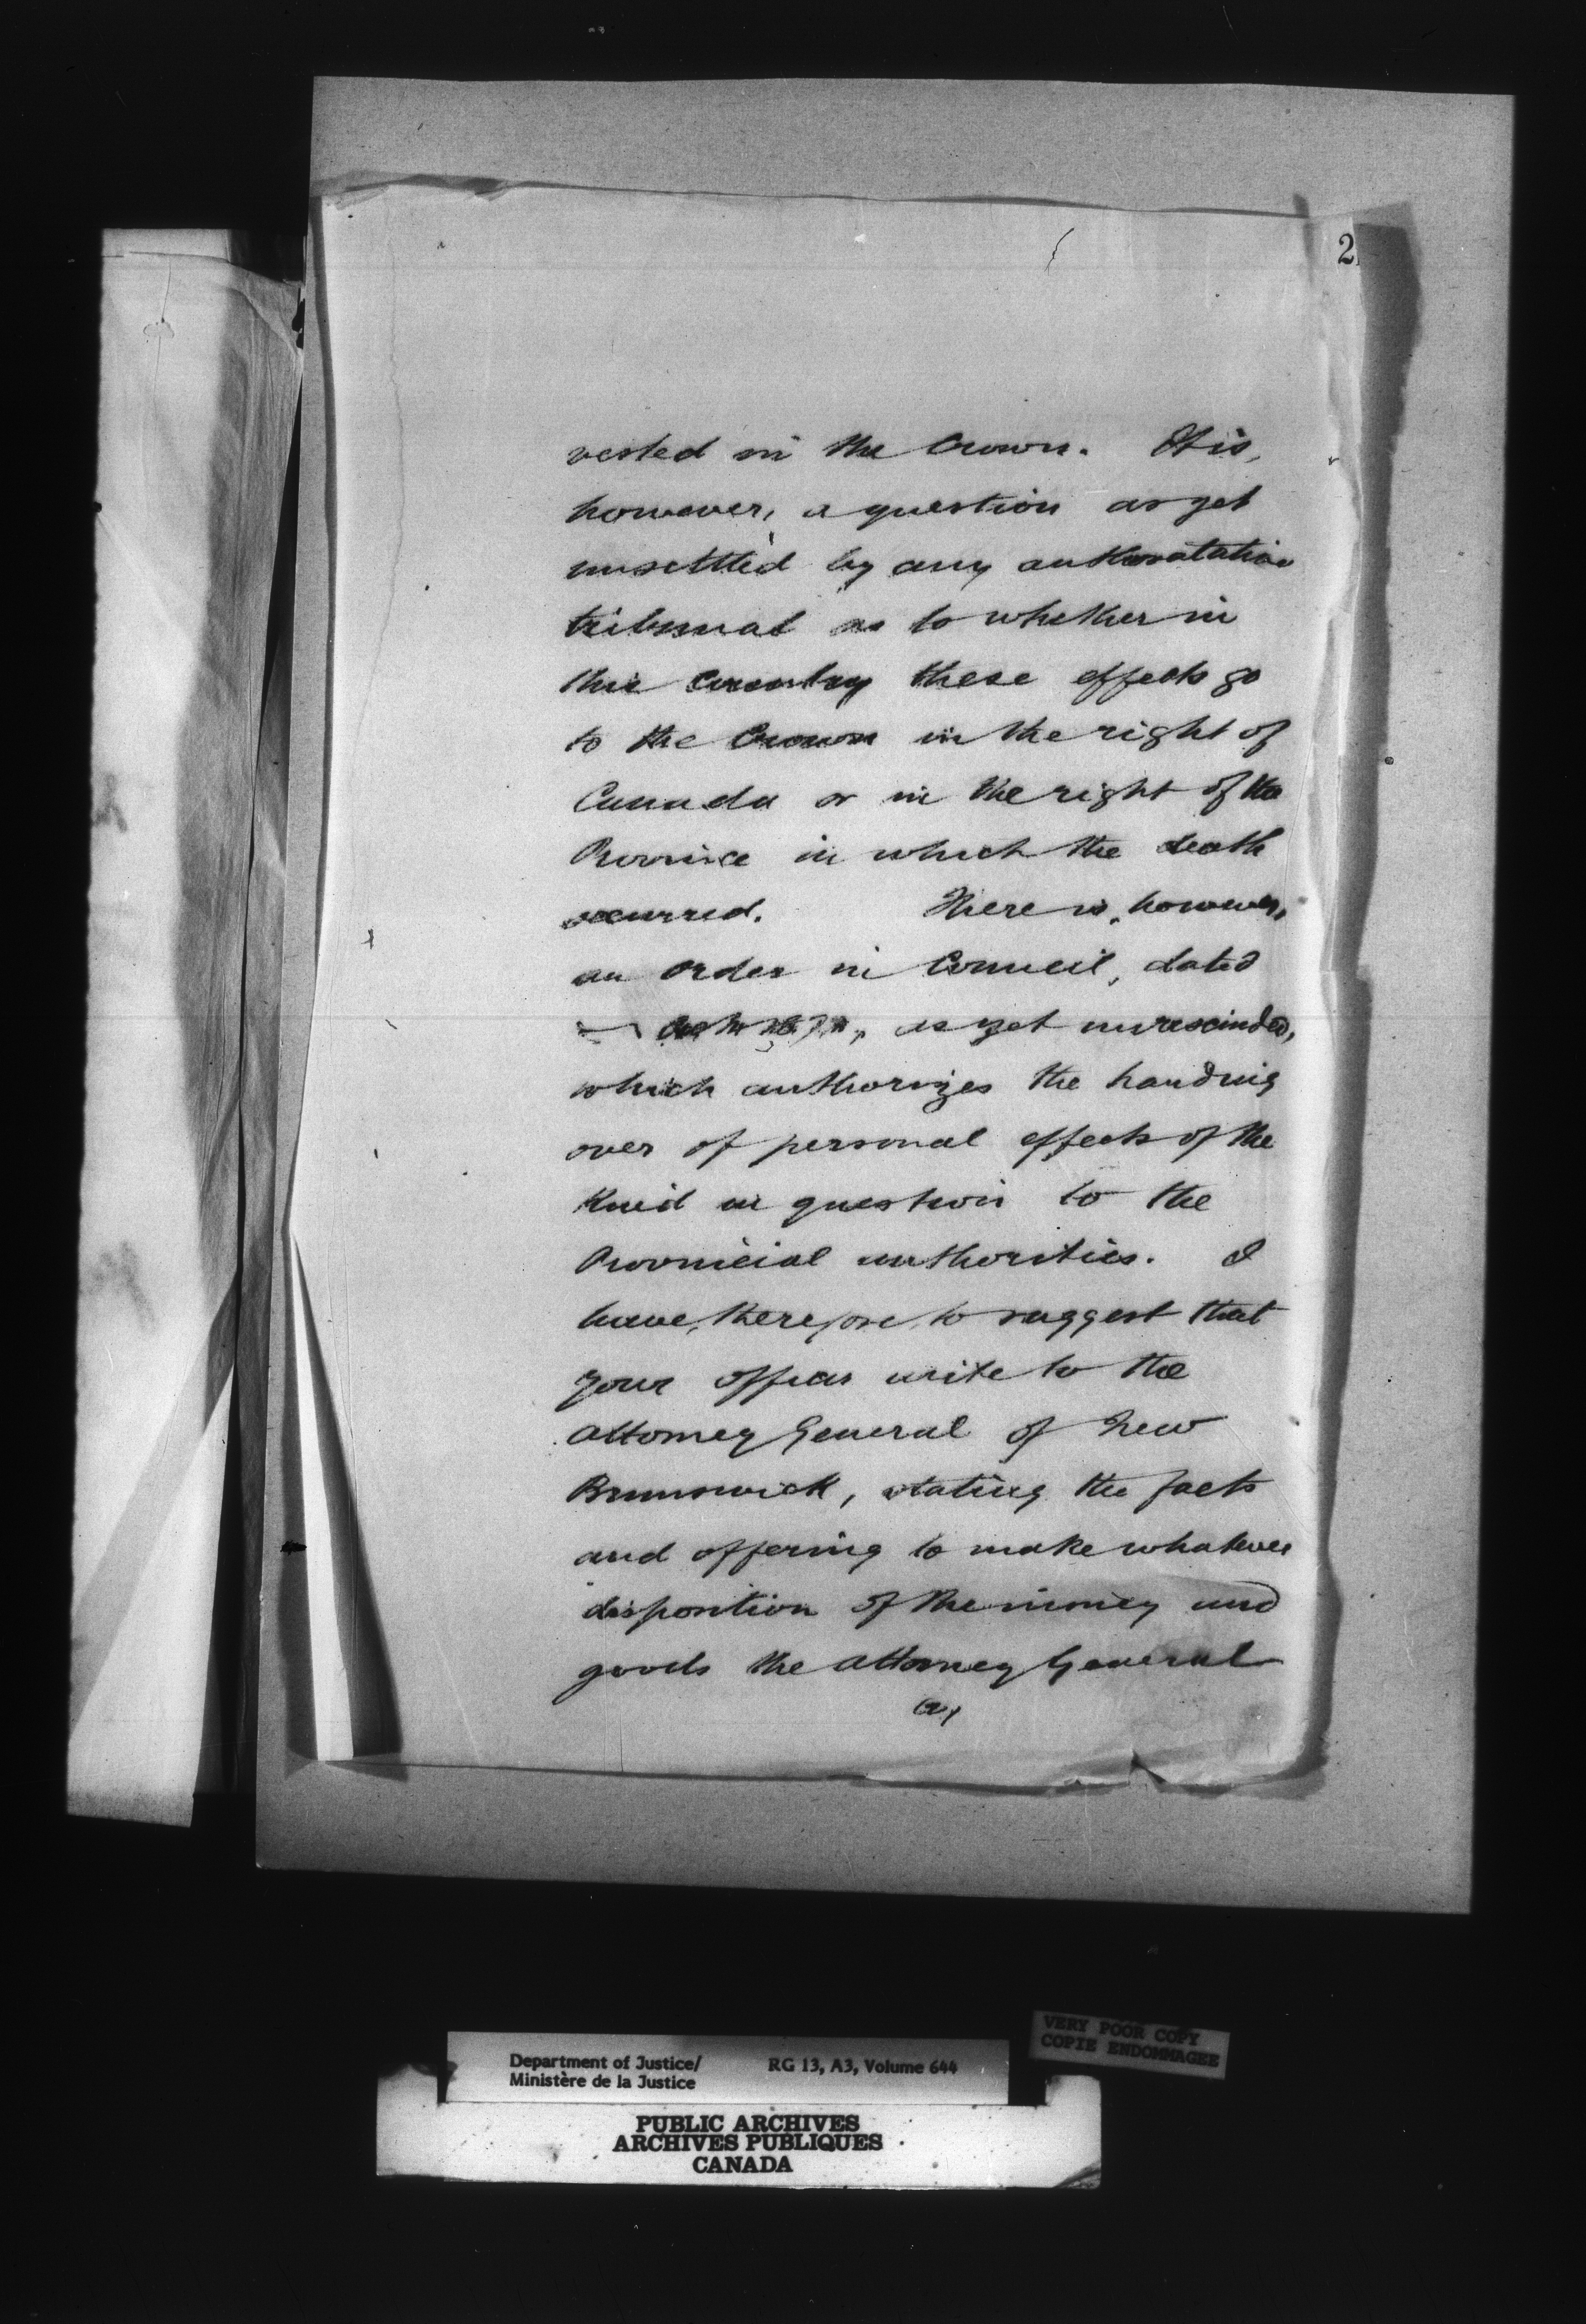 2
vested in the Crown. It is,
however, a question as yet
unsettled by any authoratative
tribunal as to whether in
this country these effects go
to the Crown in the right of
Canada or in the right of the
Province in which the death
occurred. There is, however,
an order in Council, dated
as yet unrescinded,
which authorizes the handing
over of personal effects of the
kind in question to the
Provincial authorities. I
have, therefore, to suggest that
your officer write to the
Attorney General of New
Brunswick, stating the facts
and offering to make whatever
disposition of the money and
goods the Attorney General
(2)
VERY POOR COPY
COPIE ENDOMMAGEE
Department of Justice/ RG 13, A3, Volume 644
Ministère de la Justice
PUBLIC ARCHIVES
ARCHIVES PUBLIQUES
CANADA